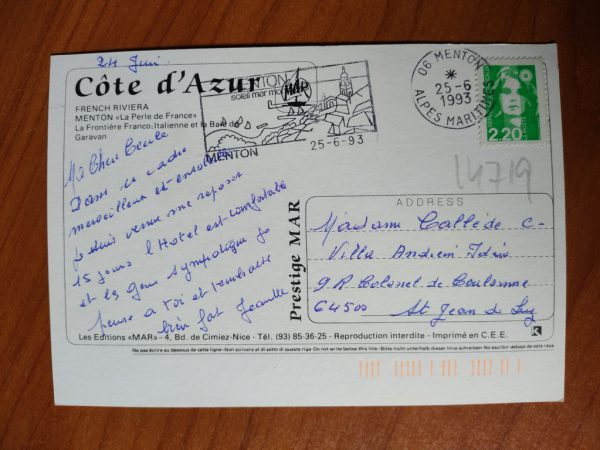 24 Juin
Côte d'Azur
FRENCH RIVIERA
MENTON «La Perle de France»
La Frontière Franco-Italienne et la Baie de
Garavan
MENTON
soleil mer
MAR
MENTON
25-6-93
06 MENTON
*
25-6
1993
ALPES MARITIMES
2,20
14719
Ma Chère
Dans ce cadre
merveilleux et ensoleillé
je suis venue me reposer
15 jours l'Hotel est comfortable
et les gens sympatique je
pense a toi et t'embrasse
bien fort Jeannette
Prestige MAR
ADDRESS
Madame Callède C-
Villa
9 R. Colonel de
64500 St Jean de Luz
Les Editions «MAR» - 4, Bd. de Cimiez-Nice - Tél. (93) 85-36-25 - Reproduction interdite - Imprimé en C.E.E.
Ne pas écrire au dessous de cette ligne - Non scrivere al di sotto di questa riga - Do not write below this line - Bitte nicht unterhalb dieser linie schreiben - No escribir debajo de esta raya